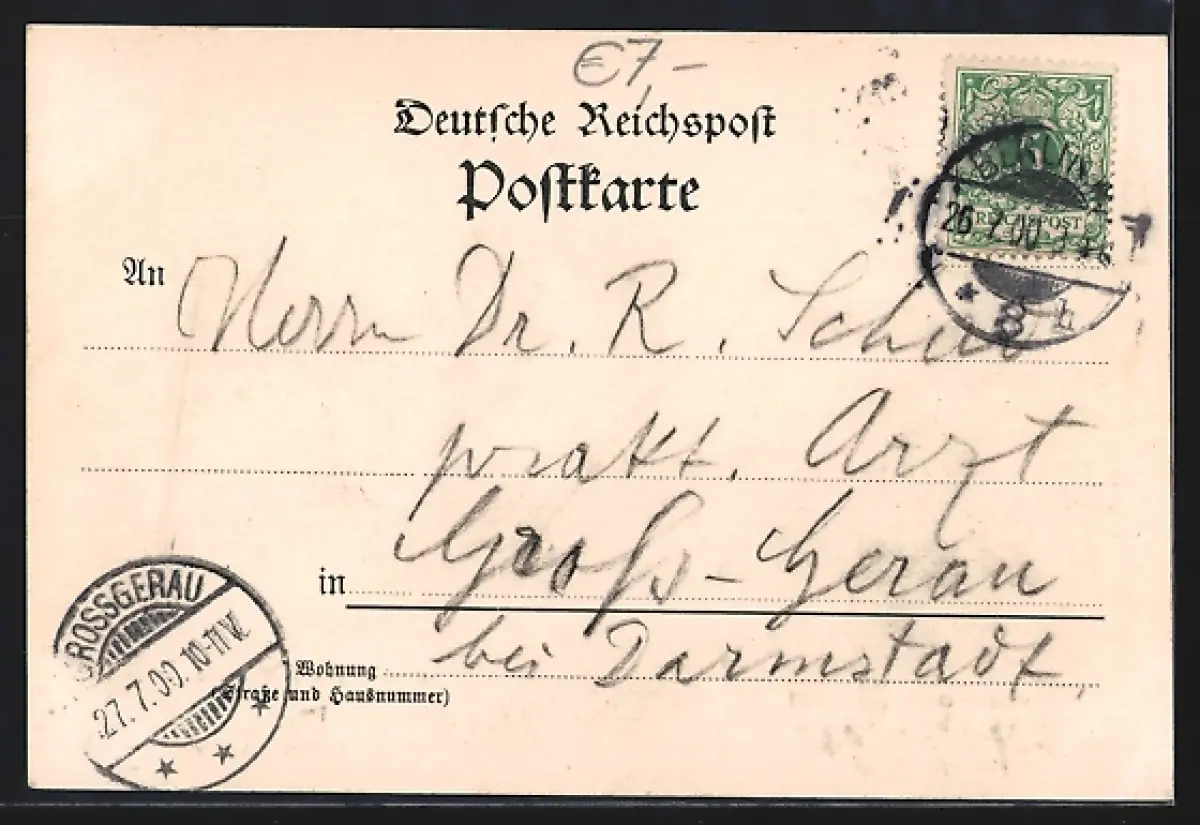 €7,-
Deutsche Reichspost
Postkarte
REICHSPOST
BERLIN
26.7.00
8 h
An Herrn Dr. R.
prakt. Arzt
in Gross-Gerau
bei Darmstadt,
Wohnung
(Straße und Hausnummer)
GROSSGERAU
27.7.00. 10-11V.